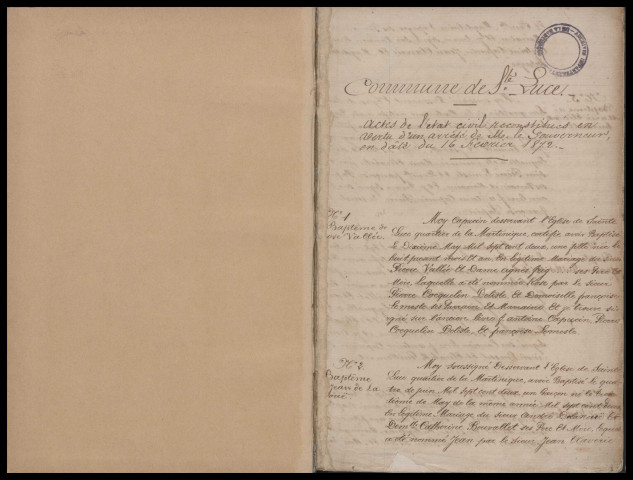 Commune de Ste. Luce.
Actes de l'état civil reconstitués en
vertu d'un arrêté de Mr. le Gouverneur,
en date du 16 Février 1872.
No. 1
Baptême de
Vallée
Moy Capucin desservant l'Eglise de Sainte
Luce quartier de la Martinique, certifie avoir Baptisé
le Dixième May Mil sept cent deux, une fille née le
huit présent mois et an. En légitime Mariage du Sieur
Pierre Vallée et Dame Agnès ses Père et
Mère, laquelle a été nommée Rose par le Sieur
Pierre Cocquelin Delisle et Demoiselle françoise
Lemesle ses Parrain et Marraine et
signé sur l'ancien livre f. Antoine Capucin, Pierre
Cocquelin Delisle, et françoise Lemesle
No. 2
Baptême
Jean de La
Moy soussigné Desservant l'Eglise de Sainte
Luce quartier de la Martinique, avoir Baptisé le quatre
de juin Mil sept cent deux, un Garçon né le
de May de la même année Mil sept cent deux
En légitime Mariage du sieur André et
Demlle. Catherine ses Père et Mère, lequel
a été nommé Jean par le Sieur Jean